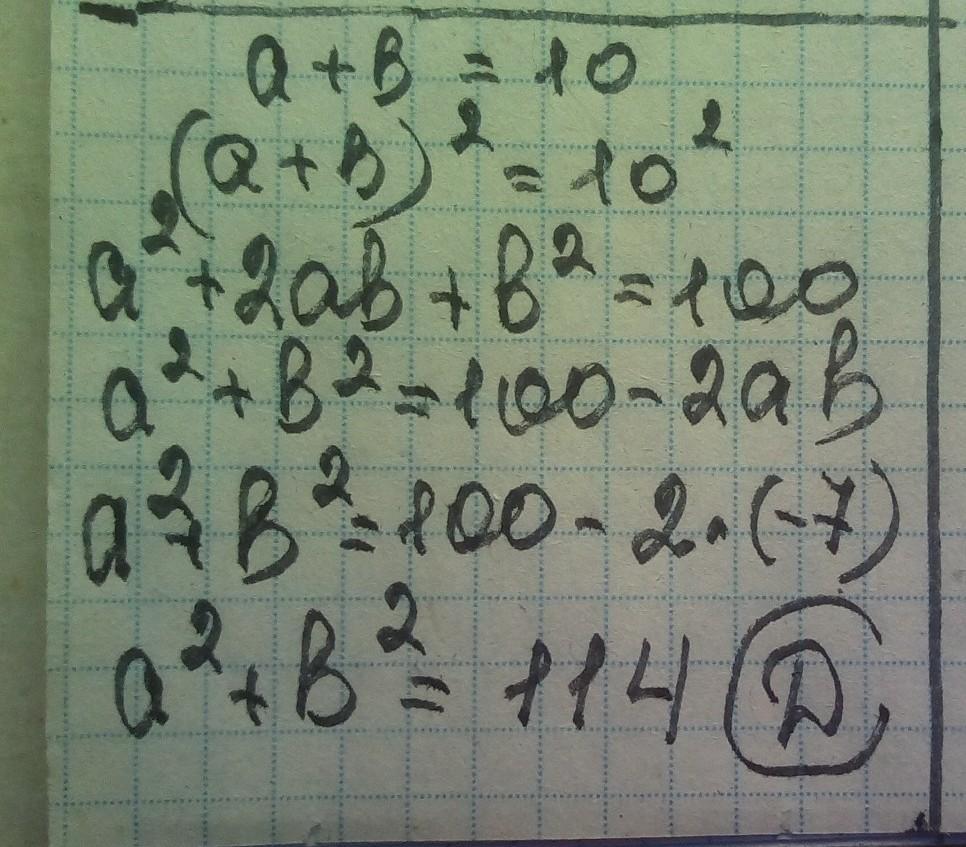 a + b = 10
(a + b)² = 10²
a² + 2ab + b² = 100
a² + b² = 100 - 2ab
a² + b² = 100 - 2·(-7)
a² + b² = 114 D